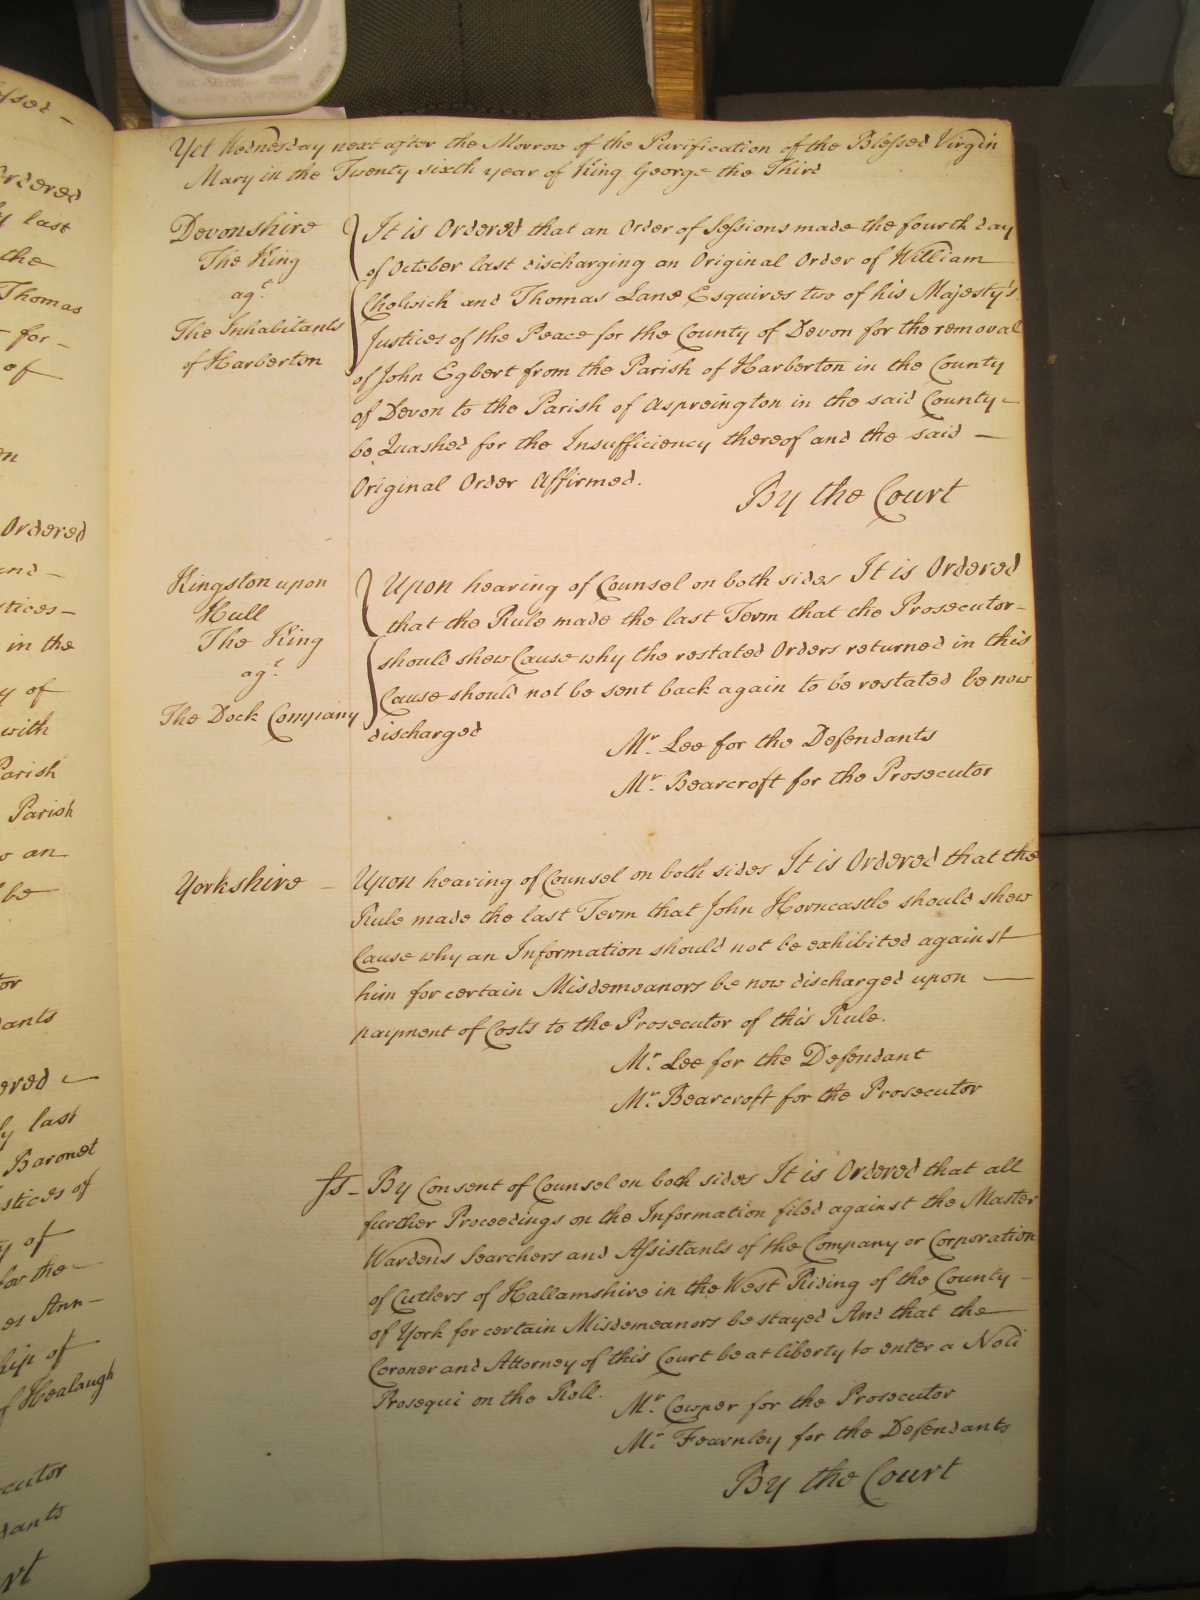 Yet Wednesday next after the Morrow of the Purification of the Blessed Virgin
Mary in the Twenty sixth year of King George the Third
Devonshire
The King
agt.
The Inhabitants
of Harberton
It is Ordered that an Order of Sessions made the fourth day
of October last discharging an Original Order of William
Cholwich and Thomas Lane Esquires two of his Majesty's
Justices of the Peace for the County of Devon for the removal
of John Egbert from the Parish of Harberton in the County
of Devon to the Parish of Aspreington in the said County
be Quashed for the Insufficiency thereof and the said
Original Order Affirmed.
By the Court
Kingston upon
Hull
The King
agt.
The Dock Company
Upon hearing of Counsel on both sides It is Ordered
that the Rule made the last Term that the Prosecutor
should shew Cause why the restated Orders returned in this
Cause should not be sent back again to be restated be now
discharged
Mr. Lee for the Defendants
Mr. Bearcroft for the Prosecutor
Yorkshire
Upon hearing of Counsel on both sides It is Ordered that the
Rule made the last Term that John Horncastle should shew
Cause why an Information should not be exhibited against
him for certain Misdemeanors be now discharged upon
payment of Costs to the Prosecutor of this Rule.
Mr. Lee for the Defendant
Mr. Bearcroft for the Prosecutor
ss - By Consent of Counsel on both sides It is Ordered that all
further Proceedings on the Information filed against the Master
Wardens Searchers and Assistants of the Company or Corporation
of Cutlers of Hallamshire in the West Riding of the County
of York for certain Misdemeanors be stayed And that the
Coroner and Attorney of this Court be at liberty to enter a Noli
Prosequi on the Roll.
Mr. Cowper for the Prosecutor
Mr. Fearnley for the Defendants
By the Court